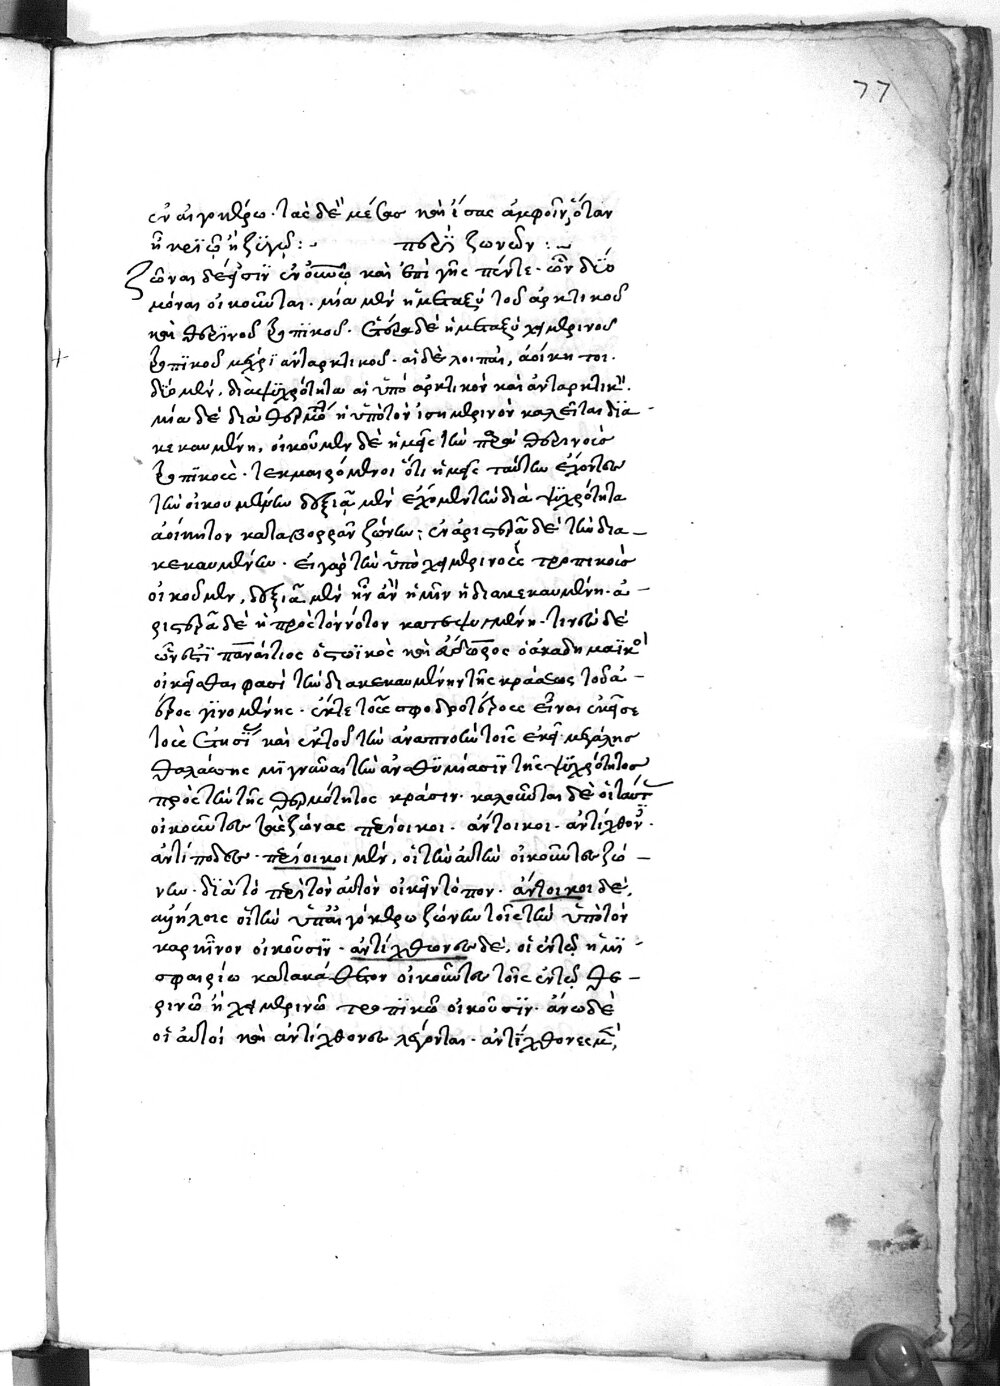 77
ἐν αἰγοκέρω· τὰς δὲ μέσας καὶ ἴσας ἀμφοῖν, ὅταν
ἢ κριῶ ἢ ζυγῶ :~ περὶ ζωνῶν :~
Ζῶναι δέ εἰσιν ἐν οὐνῶ καὶ ἐπὶ γῆς πέντε· ὧν δύο
μόναι οἰκοῦνται. μία μὲν ἡ μεταξὺ τοῦ ἀρκτικοῦ
καὶ θερινοῦ τροπικοῦ· ἑτέρα δὲ ἡ μεταξὺ χειμερινοῦ
τροπικοῦ μέχρι ἀνταρκτικοῦ· αἱ δὲ λοιπαὶ, ἀοίκητοι.
δύο μὲν, διὰ ψυχρότητα αἱ ὑπὸ ἀρκτικὸν καὶ ἀνταρκτικ.
μία δὲ διὰ θερμότ ἡ ὑπὸ τὸν ἰσημερινὸν καλεῖται δια
κεκαυμένη, οἰκοῦμεν δὲ ἡμεῖς τὴν πρὸς θερινοῖς
τροπικοῖς· τεκμαιρόμενοι ὅτι ἡμεῖς ταύτην ἔχοντες
τὴν οἰκουμένην δεξιᾷ μὲν ἐχόμεν τὴν διὰ ψυχρότητα
ἀοίκητον κατὰ βορρᾶν ζώνην; ἐν ἀριστερᾷ δὲ τὴν δια–
κεκαυμένην. εἰ γὰρ τὴν ὑπὸ χειμερινοῖς τροπικοῖς
οἰκοῦμεν, δεξιᾷ μὲν ἦν ἂν ἡμῖν ἡ διακεκαυμένη· ἀ–
ριστερᾷ δὲ ἡ πρὸς τὸν νότον κατεψυγμένη· τινὲς δὲ
ὧν ἐστι παναίτιος ὁ στωϊκὸς καὶ ὁ ἀκαδημαϊκὸ
οἰκεῖσθαι φασὶ τὴν διακεκαυμένην τῆς κράσεως τοῦ ἀ–
έρος γινομένης· ἔκ τε τοὺς σφοδροτέρους εἶναι ἐκεῖσε
τοὺς ἐτησί καὶ ἐκ τοῦ τὴν ἀναπνοὴν τοῖς ἐκεῖ μεγάλης
θαλάσσης μιγνῦναι τὴν ἀναθυμίασιν τῆς ψυχρότητος
πρὸς τὴν τῆς θερμότητος κρᾶσιν· καλοῦνται δὲ οἱ ταύτ
οἰκοῦντες τὰς ζώνας περίοικοι· ἄντοικοι· ἀντίχθον.
ἀντίποδες· περίοικοι μὲν, οἱ τὴν αὐτὴν οἰκοῦντες ζώ –
νην· διὰ τὸ περὶ τὸν αὐτὸν οἰκεῖν τόπον· ἄντοικοι δὲ,
ἀλλήλοις οἱ τὴν ὑπ' αἰγόκερω ζώνην τοῖς τὴν ὑπὸ τὸν
καρκῖνον οἰκοῦσιν· ἀντίχθωνες δὲ, οἱ ἐν τῷ ἡμι –
σφαιρίω κατακάθετον οἰκοῦντες τοῖς ἐν τῷ θε –
ρινῶ ἢ χειμερινῶ τροπικῶ οἰκοῦσιν· ἄνω δὲ
οἱ αὐτοὶ καὶ ἀντίχθονες λέγονται· ἀντίχθονες μ,